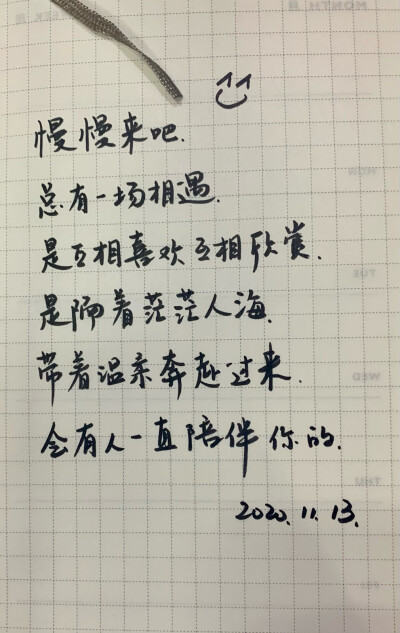 慢慢来吧.
总有一场相遇.
是互相喜欢互相欣赏.
是隔着茫茫人海.
带着温柔奔赴过来.
会有人一直陪伴你的.
2020.11.13.